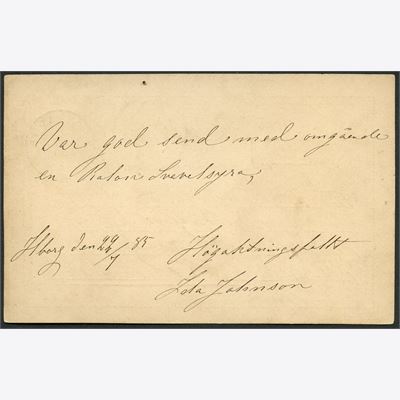 Var god send med omgående
en Ralon Svavelsyra,
Hborg den 29/7 85
Högaktningsfullt
Johnson